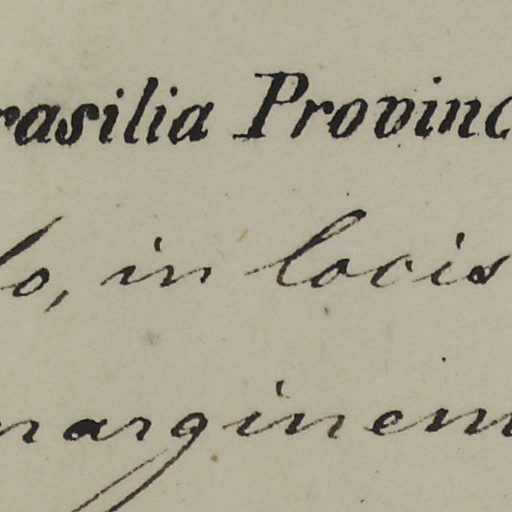 rasilia Provinc
lo, in locis
marginem